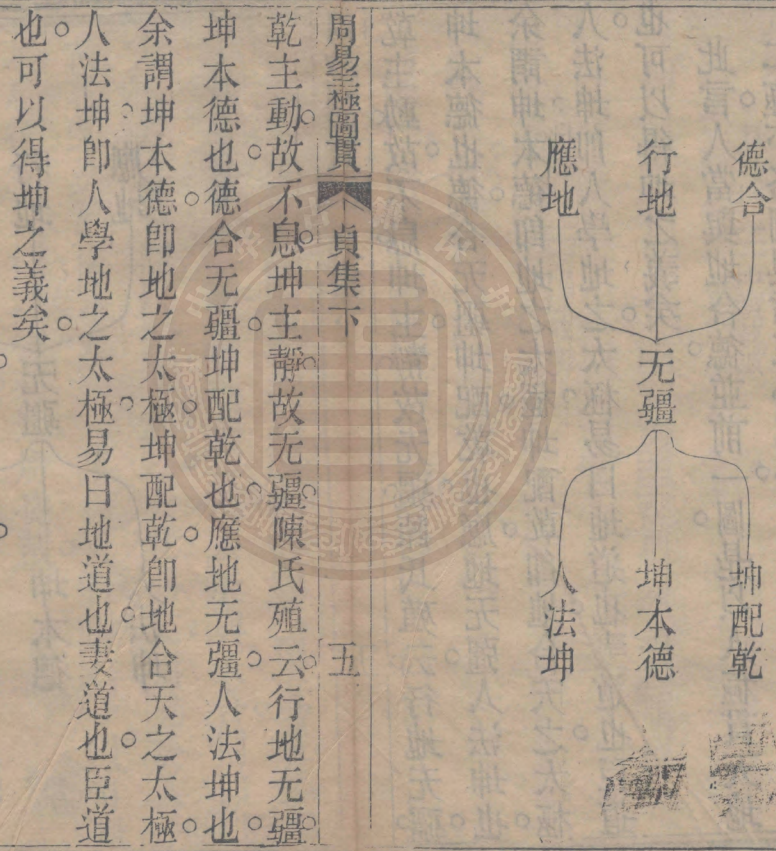 德合
行地
應地
无疆
坤配乾
坤本德
人法坤
周易三極圖貫
貞集下
五
乾主動故不息坤主靜故无疆陳氏殖云行地无疆
坤本德也德合无疆坤配乾也應地无疆人法坤也
余謂坤本德卽地之太極坤配乾卽地合天之太極
人法坤卽人學地之太極易曰地道也妻道也臣道
也可以得坤之義矣